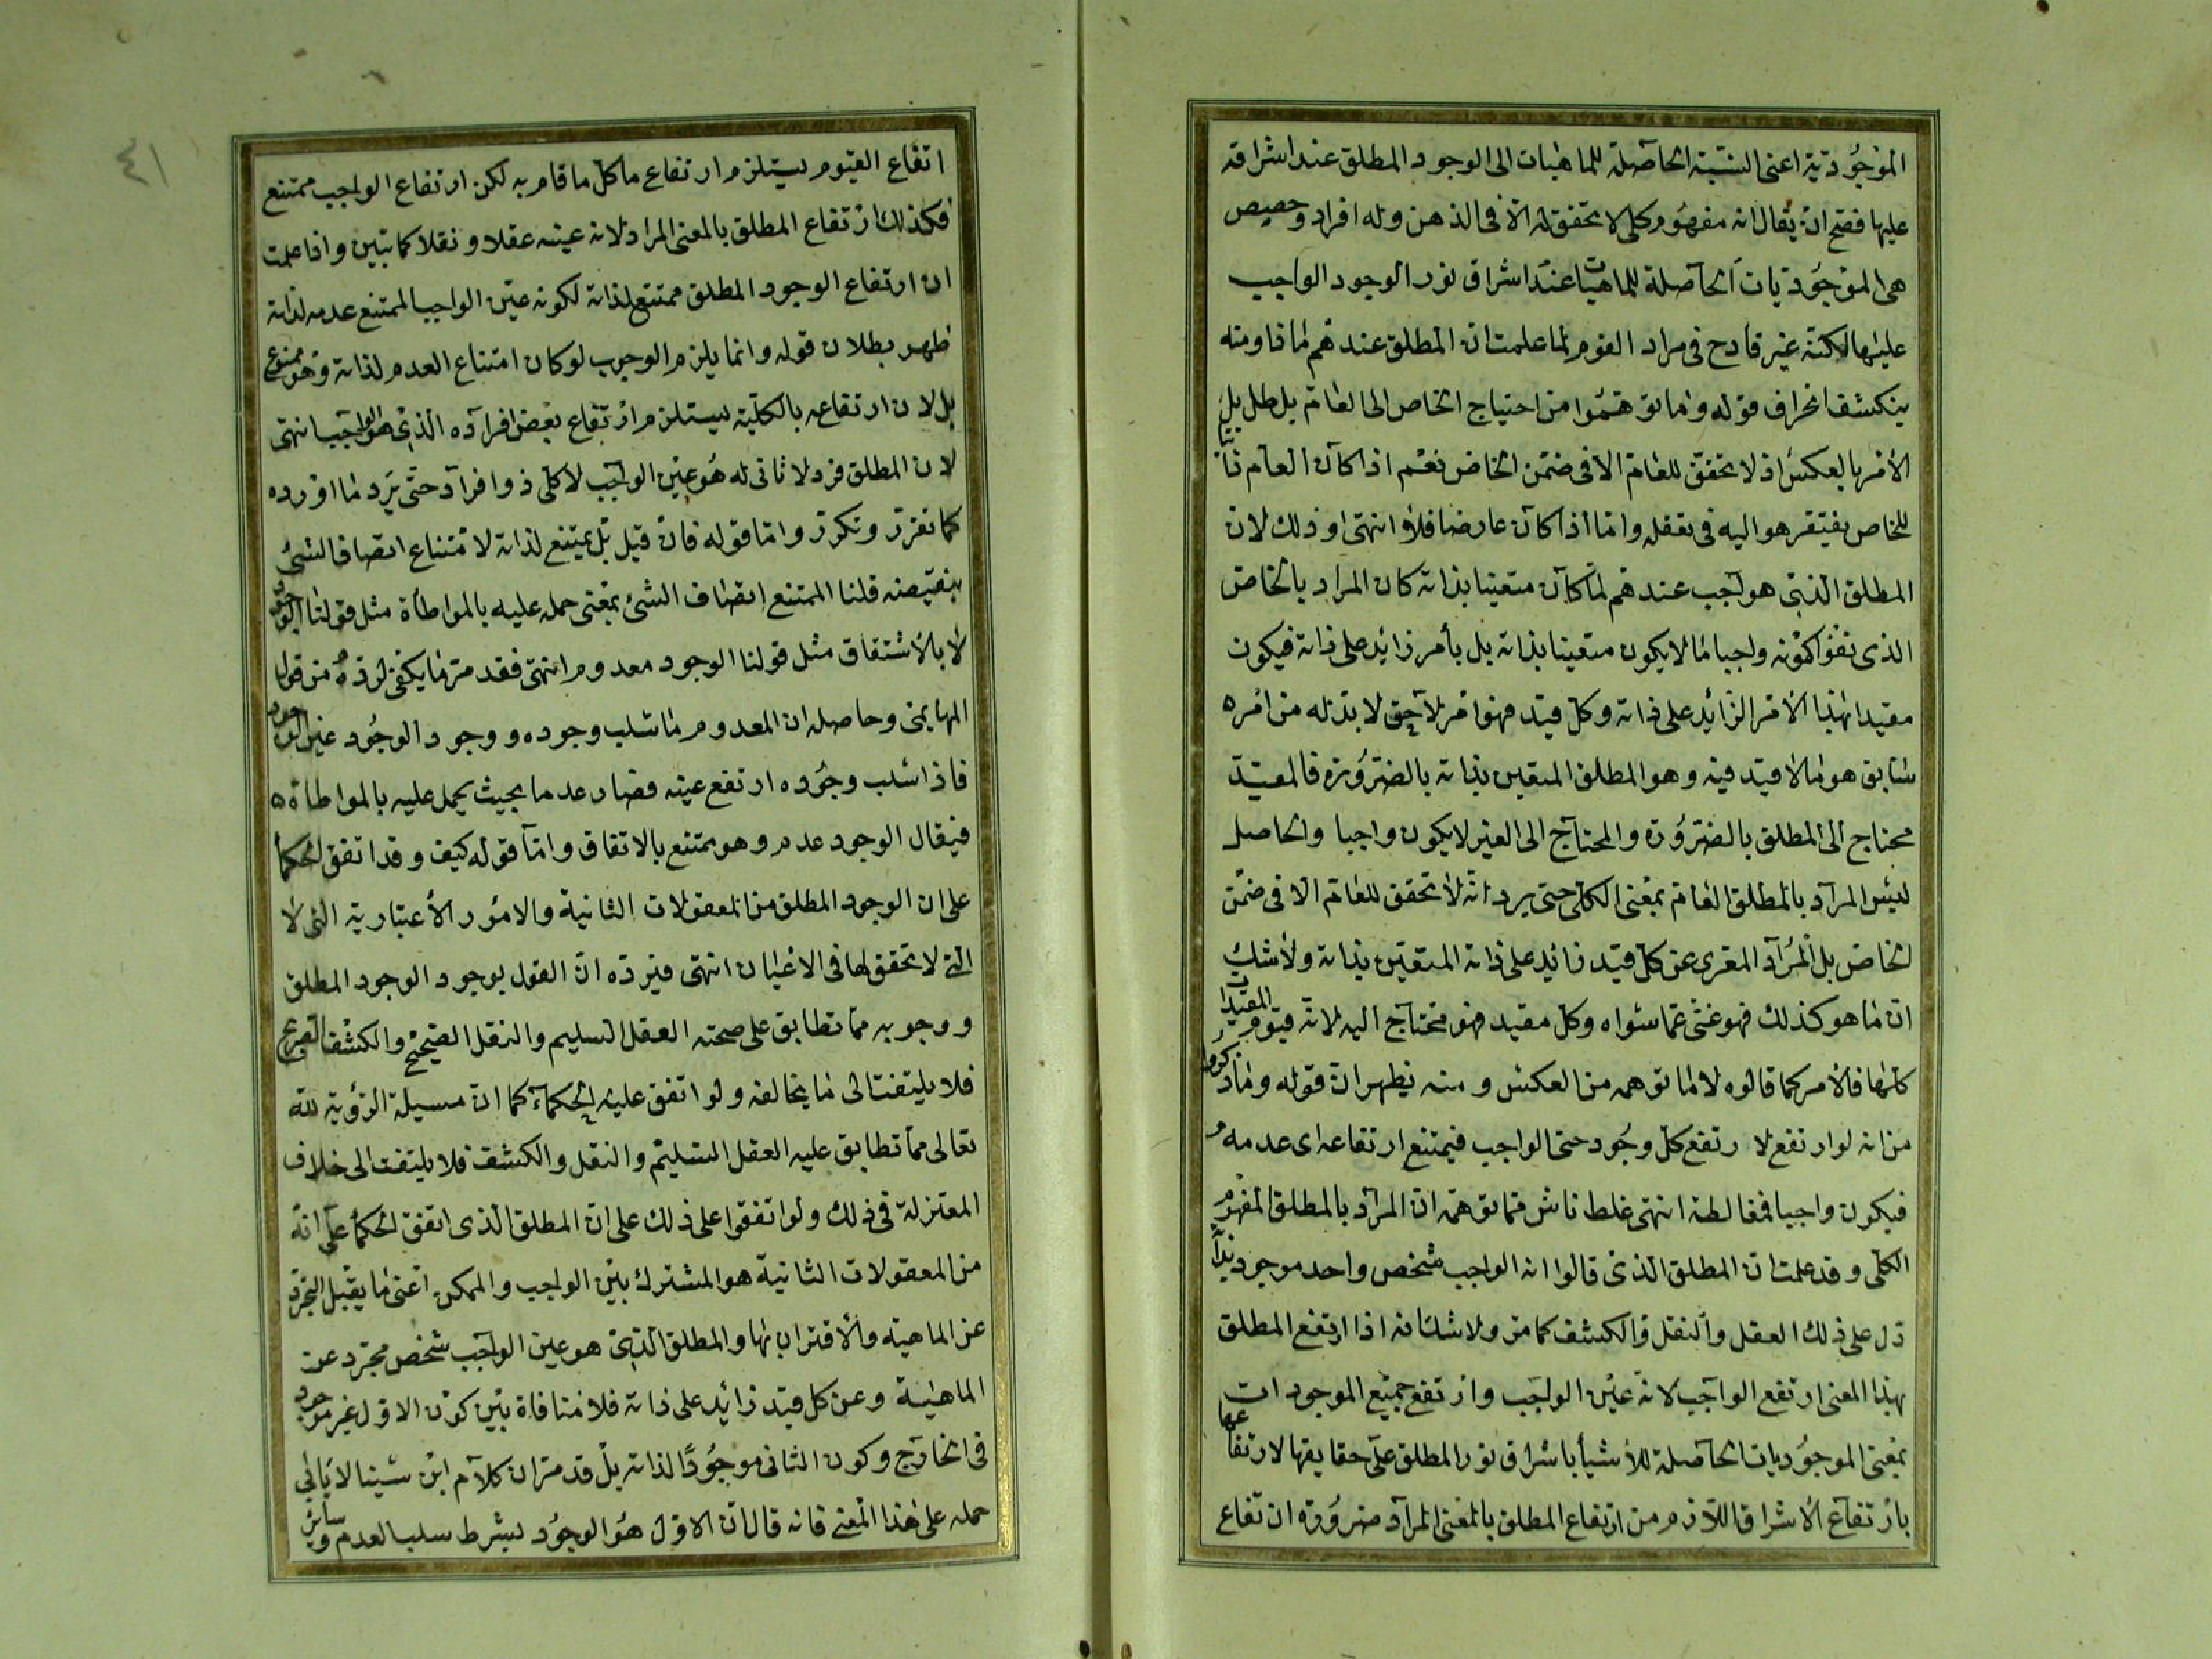 الموجودية اعنى النسبة الحاصلة للماهيات الى الوجود المطلق عند اشراقه
عليها فصح ان يقال انه مفهوم كلى لا تحقق له الا فى الذهن وله افراد وحصيص
هى الموجوديات الحاصلة للماهيات عند اشراق نور الوجود الواجب
عليها لكنه غير قادح فى مراد القوم لما علمت ان المطلق عندهم ماذا ومنه
ينكشف انحراف قوله وما توهموا من احتياج الخاص الى العام باطل بل
الأمر بالعكس اذ لا تحقق للعام الا فى ضمن الخاص نعم اذا كان العام ذاتيا
للخاص يفتقر هو اليه فى تعقله واما اذا كان عارضا فلا انتهى وذلك لان
المطلق الذى هو واجب عندهم لما كان متعينا بذاته كان المراد بالخاص
الذى نفوا كونه واجبا ما لا يكون متعينا بذاته بل بأمر زائد على ذاته فيكون
مقيدا بهذا الأمر الزائد على ذاته وكل قيد فهو امر لاحق لا بد له من امره
سابق هو ما لا قيد فيه وهو المطلق المتعين بذاته بالضرورة فالمقيد
محتاج الى المطلق بالضرورة والمحتاج الى الغير لا يكون واجبا والحاصل
ليس المراد بالمطلق العام بمعنى الكلى حتى يرد انه لا تحقق للعام الا فى ضمن
الخاص بل المراد المعرى عن كل قيد زائد على ذاته المتعين بذاته ولا شك
ان ما هو كذلك فهو غنى عما سواه وكل مقيد فهو محتاج اليه لانه قيوم المقيدات
كلها فالأمر كما قالوه لا ما توهمه من العكس ومنه يظهر ان قوله وما ذكروا
من انه لو ارتفع لا رتفع كل وجود حتى الواجب فيمتنع ارتفاعه اى عدمه
فيكون واجبا فمغالطة انتهى غلط ناش مما توهمه ان المراد بالمطلق المفهوم
الكلى وقد علمت ان المطلق الذى قالوا انه الواجب شخص واحد موجود بذاته
دل على ذلك العقل والنقل والكشف كما مر ولا شك انه اذا ارتفع المطلق
بهذا المعنى ارتفع الواجب لانه عين الواجب وارتفع جميع الموجودات
بمعنى الموجوديات الحاصلة للأشيأ باشراق نور المطلق على حقايقها لارتفاعها
بارتفاع الأشراق اللازم من ارتفاع المطلق بالمعنى المراد ضرورة ان تفاع
٤١
اتفاع القيوم يستلزم ارتفاع ما كل ما قام به لكن ارتفاع الواجب ممتنع
فكذلك ارتفاع المطلق بالمعنى المراد لانه عينه عقلا ونقلا كما تبين واذا علمت
ان ارتفاع الوجود المطلق ممتنع لذاته لكونه عين الواجب الممتنع عدمه لذاته
ظهر بطلان قوله وانما يلزم الوجوب لو كان امتناع العدم لذاته وهو ممنوع
بل لان ارتفاعه بالكلية يستلزم ارتفاع بعض افراده الذى هو الواجب انتهى
لان المطلق فرد لا ثانى له هو عين الواجب لا كلى ذو افراد حتى يرد ما اورده
كما تقرر وتكرر واما قوله فان قيل بل يمتنع لذاته لامتناع اتصاف الشئ
بنقيضه قلنا الممتنع اتصاف الشئ بمعنى حمله عليه بالمواطأة مثل قولنا الوجود
لا بالأشتقاق مثل قولنا الوجود معدوم انتهى فقد مر ما يكفى لرده من قول
المهايمى وحاصله ان المعدوم ما سلب وجوده ووجود الوجود عين الوجود
فاذا سلب وجوده ارتفع عينه فصار عدما بحيث يحمل عليه بالمواطاة
فيقال الوجود عدم وهو ممتنع بالاتفاق واما قوله كيف وقد اتفق الحكمأ
على ان الوجود المطلق من المعقولات الثانية والامور الأعتبارية التى لا
التى لا تحقق لها فى الاعيان انتهى فيرده ان القول بوجود الوجود المطلق
ووجوبه مما تطابق على صحته العقل السليم والنقل الصحيح والكشف الصريح
فلا يلتفت الى ما يخالفه ولو اتفق عليه الحكمآء كما ان مسيلة الرؤية لله
تعالى مما تطابق عليه العقل السليم والنقل والكشف فلا يلتفت الى خلاف
المعتزلة فى ذلك ولو اتفقوا على ذلك على ان المطلق الذى اتفق الحكمأ على انه
من المعقولات الثانية هو المشترك بين الواجب والممكن اعنى ما يقبل التجرد
عن الماهية والأقتران بها والمطلق الذى هو عين الواجب شخص مجرد عن
الماهية وعن كل قيد زائد على ذاته فلا منافاة بين كون الاول غير موجود
فى الخارج وكون الثانى موجودا لذاته بل قد مر ان كلام ابن سينا لا يأبى
حمله على هذا المعنى فانه قال ان الاول هو الوجود بشرط سلب العدم وساير